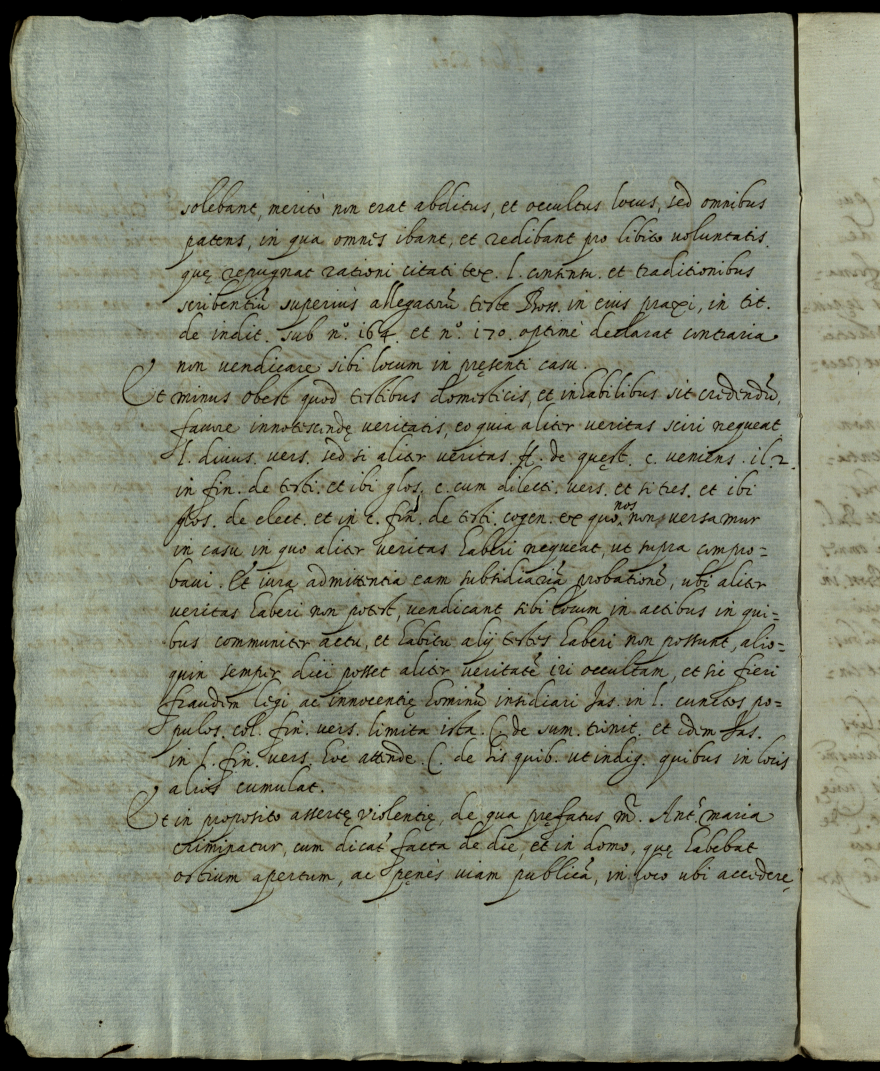 solebant, meritò non erat abditus, et occultus locus, sed omnibus
patens, in qua omnes ibant, et redibant pro libito voluntatis,
quę repugnat rationi citati tex. l. contintu. et traditionibus
scribentiũ superius allegatorũ teste Boss. in eius praxi, in tit.
de indit. sub nº. 164. et nº. 170. optimè declarat contraria
non vendicare sibi locum in pręsenti casu.
Et minus obest quod testibus domesticis, et inhabilibus sit credendũ,
favore innotescendę veritatis, eo quia aliter veritas sciri nequeat
l. divus. vers. sed si aliter veritas. ff. de quęst. c. veniens. il. 2.
in fin. de testi. et ibi glos. c. cum dilecti. vers. et si tres. et ibi
glos. de elect. et in c. fin. de testi. cogen. ex quo nos non versamur
in casu in quo aliter veritas haberi nequeat, ut supra compro=
bavi. Et iura admittentia eam subsidiariã probationẽ, ubi aliter
veritas haberi non potest, vendicant sibi locum in actibus in qui=
bus communiter actu, et habitu alij testes haberi non possunt, alio=
quin semper dici posset aliter veritatẽ iri occultam, et sic fieri
fraudem legi ac innocentię hominũ insidiari Jas. in l. cunctos po=
pulos. col. fin. vers. limita ista. C. de sum. trinit. et idem Jas.
in l. fin. vers. hoc attende. C. de his quib. ut indig. quibus in locis
alios cumulat.
Et in proposito assertę violentię, de qua pręfatus m.̃ Antˢ maria
criminatur, cum dicat.̃ facta de die, et in domo, quę habebat
ostium apertum, ac pęnès viam publicã, in loco ubi accedere